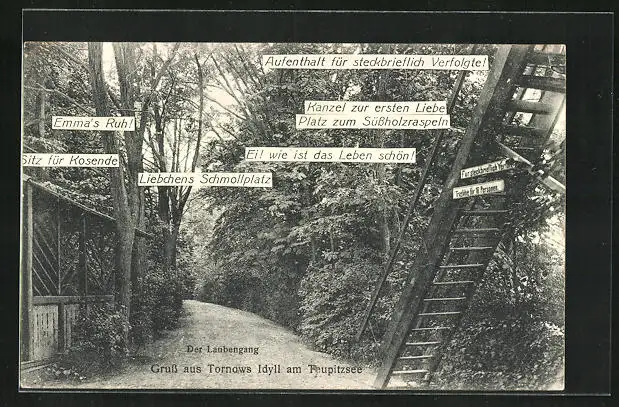 Aufenthalt für steckbrieflich Verfolgte!
Kanzel zur ersten Liebe
Platz zum Süßholzraspeln
Emma's Ruh!
Ei! wie ist das Leben schön!
Sitz für Kosende
Liebchens Schmollplatz
Für steckbrieflich
für 16 Personen.
Der Laubengang
Gruß aus Tornows Idyll am Teupitzsee